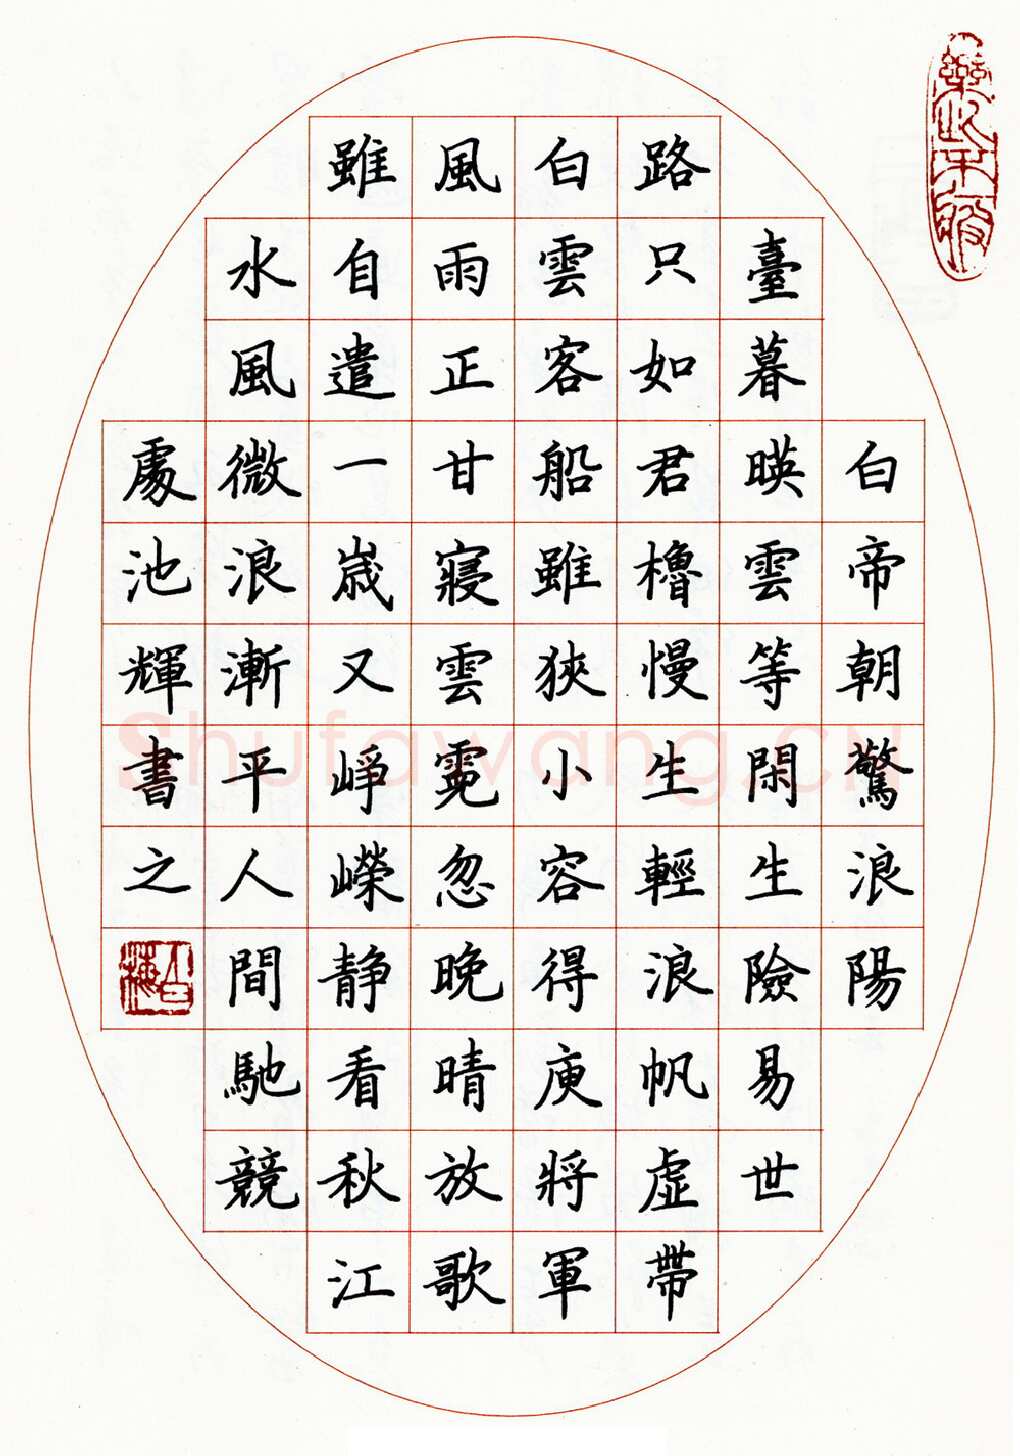 白帝朝驚浪陽
臺暮暎雲等閑生險易世
路只如君櫓慢生輕浪帆虛帶
白雲客船雖狹小容得庾將軍
風雨正甘寢雲霓忽晚晴放歌
雖自遣一歲又崢嶸静看秋江
水風微浪漸平人間馳競
處池輝書之
Shufawang.CN